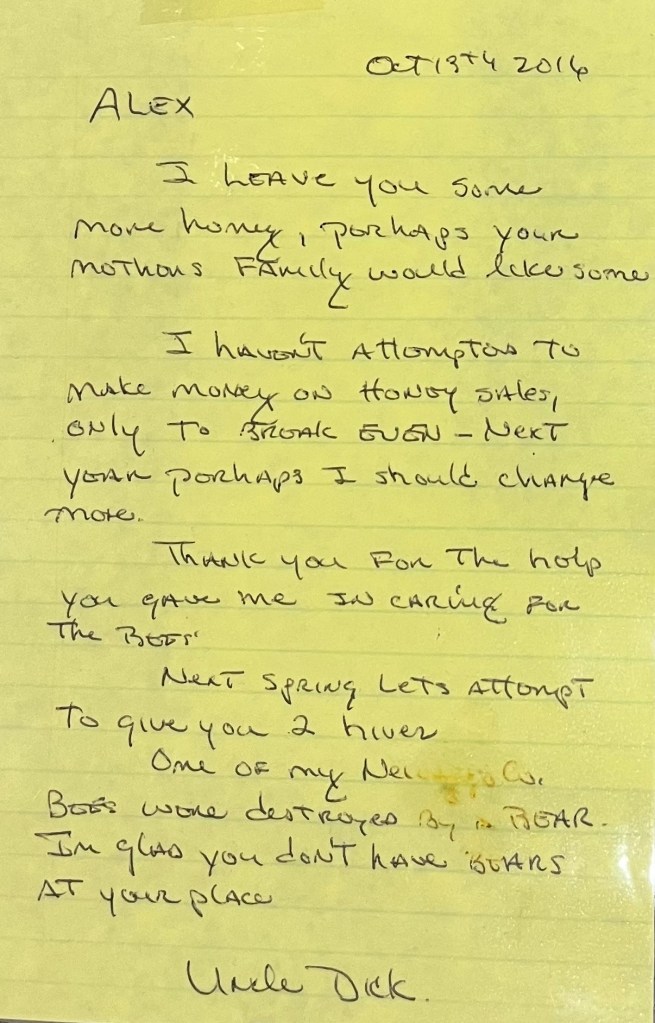 Oct 13th 2016
ALEX
I LEAVE you some
more honey, perhaps your
mothers Family would like some
I haven't attempted to
make money on Honey sales,
only to BREAK EVEN – NEXT
year perhaps I should charge
more.
Thank you for the help
you gave me in caring for
The BEES
Next spring Lets attempt
To give you 2 hives
One of my
BEES were destroyed By a BEAR.
Im glad you don't have BEARS
AT your place
Uncle Dick.